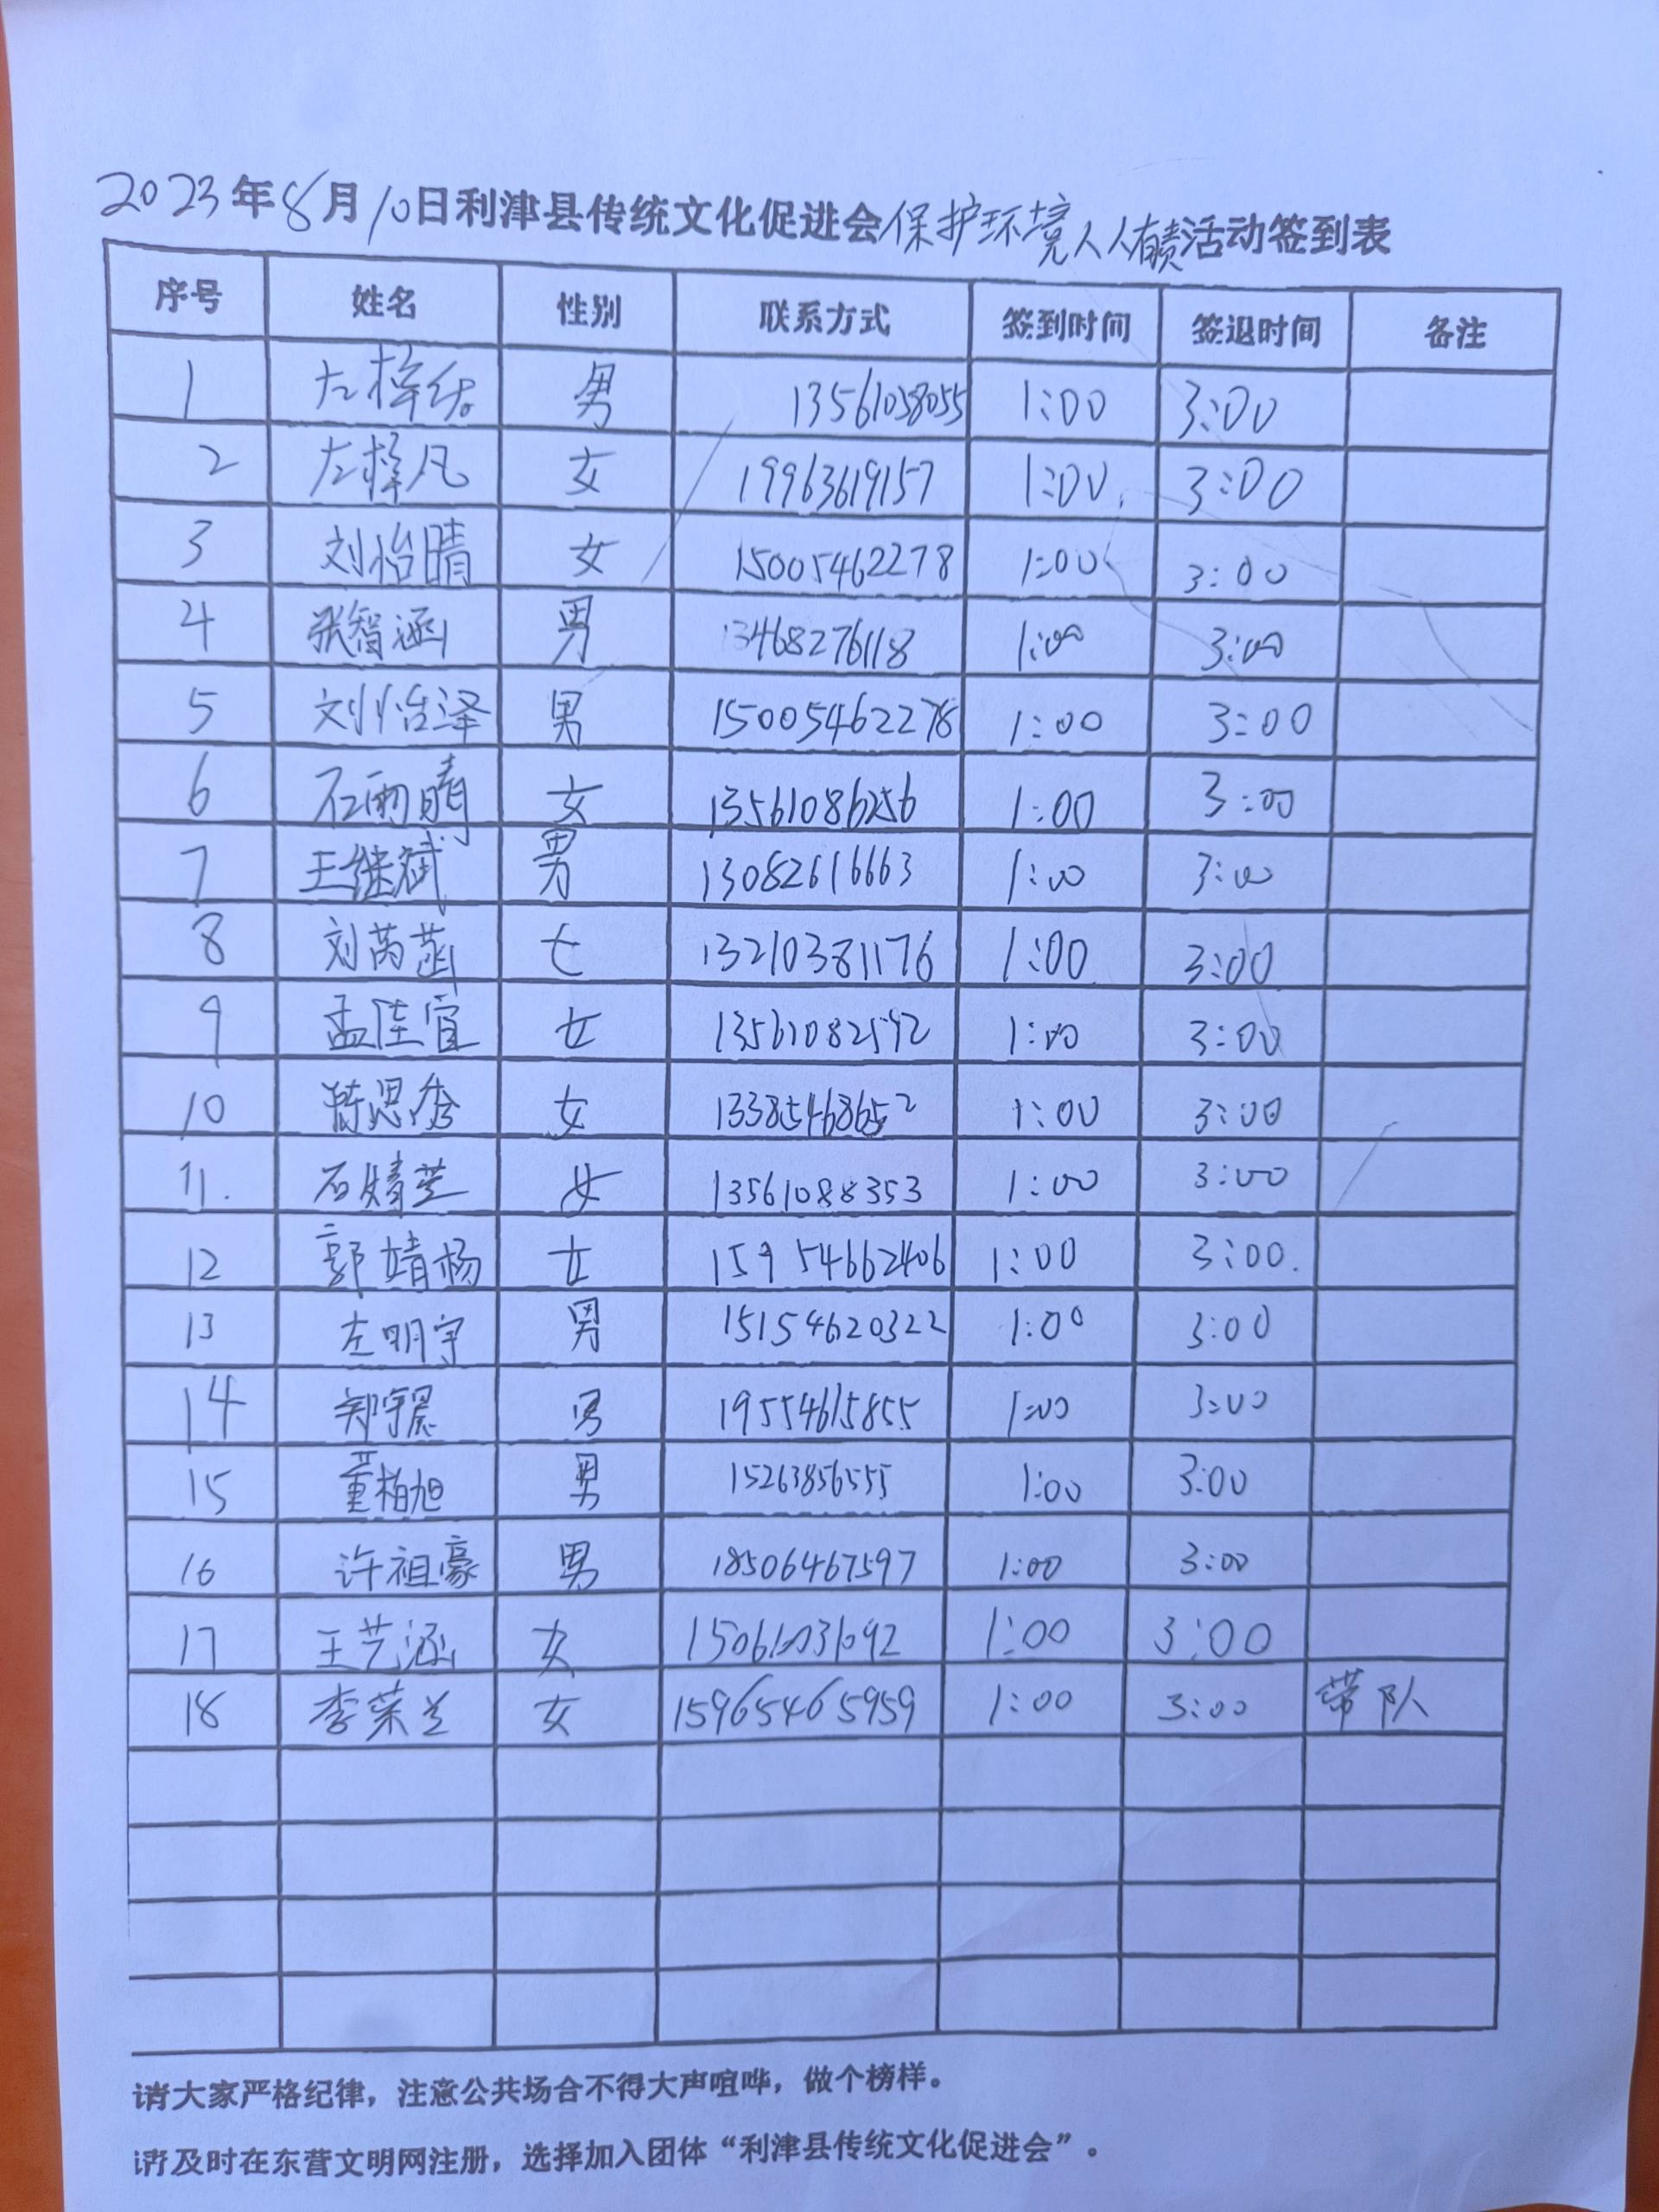 2023年8月10日利津县传统文化促进会保护环境人人有责活动签到表
序号 姓名 性别 联系方式 签到时间 签退时间 备注
1 左梓 男 13561058055 1:00 3:00
2 左梓凡 女 19963619157 1:00 3:00
3 刘怡晴 女 15005462278 1:00 3:00
4 张智涵 男 13468276118 1:00 3:00
5 刘怡泽 男 15005462278 1:00 3:00
6 石雨晴 女 13561086256 1:00 3:00
7 王继斌 男 13082616663 1:00 3:00
8 刘芮菡 女 13210381176 1:00 3:00
9 孟佳宜 女 13561082592 1:00 3:00
10 思 女 1:00 3:00
11. 石婧芝 女 13561088353 1:00 3:00
12 郭婧杨 女 15954662406 1:00 3:00.
13 左明宇 男 15154620322 1:00 3:00
14 郑宇晨 男 19554615855 1:00 3:00
15 董柏旭 男 15263856555 1:00 3:00
16 许祖豪 男 18506467597 1:00 3:00
17 王艺涵 女 1:00 3:00
18 李荣兰 女 15965465959 1:00 3:00 带队
请大家严格纪律，注意公共场合不得大声喧哗，做个榜样。
请及时在东营文明网注册，选择加入团体“利津县传统文化促进会”。